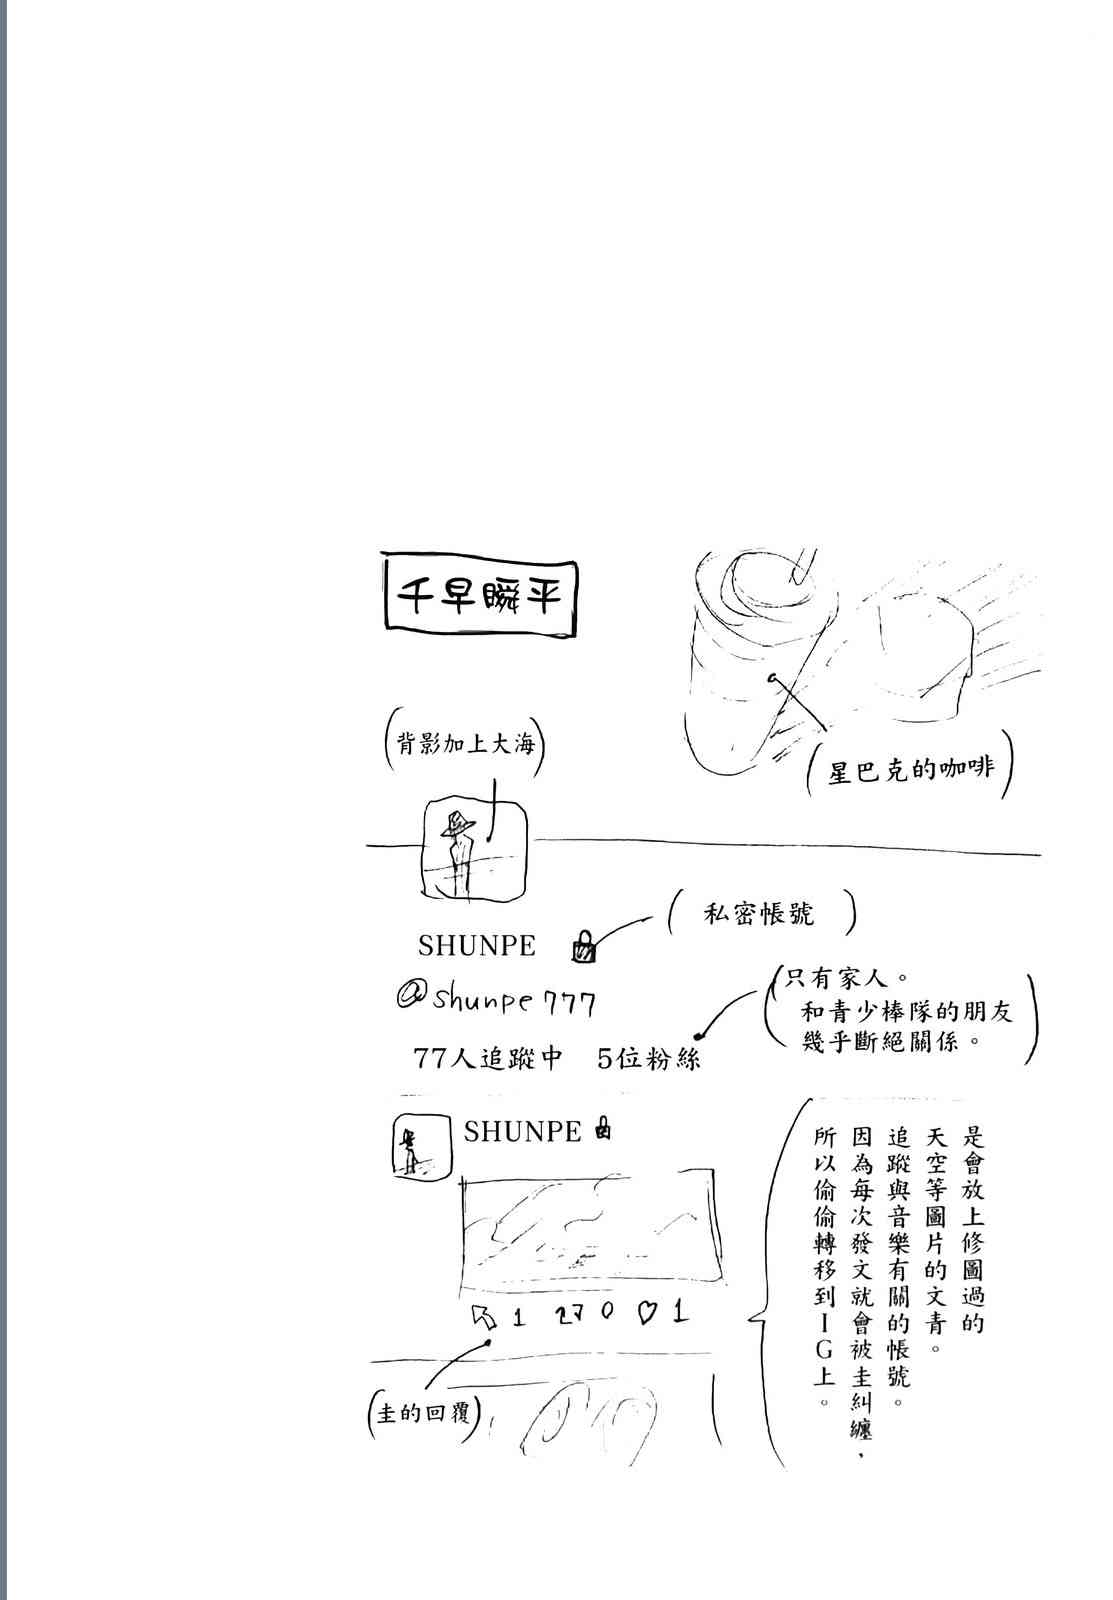 千早瞬平
(背影加上大海)
(星巴克的咖啡)
SHUNPE
(私密帳號)
@shunpe777
(只有家人。
和青少棒隊的朋友
幾乎斷絕關係。)
77人追蹤中 5位粉絲
SHUNPE
是會放上修圖過的
天空等圖片的文青。
追蹤與音樂有關的帳號。
因為每次發文就會被圭糾纏，
所以偷偷轉移到IG上。
1 0 ♡ 1
(圭的回覆)